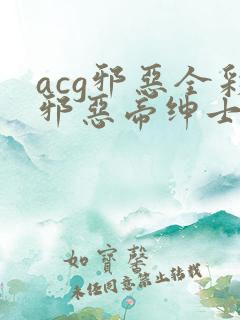 acg邪惡全彩
邪惡帝绅士
如寶馨
未经同意禁止转载